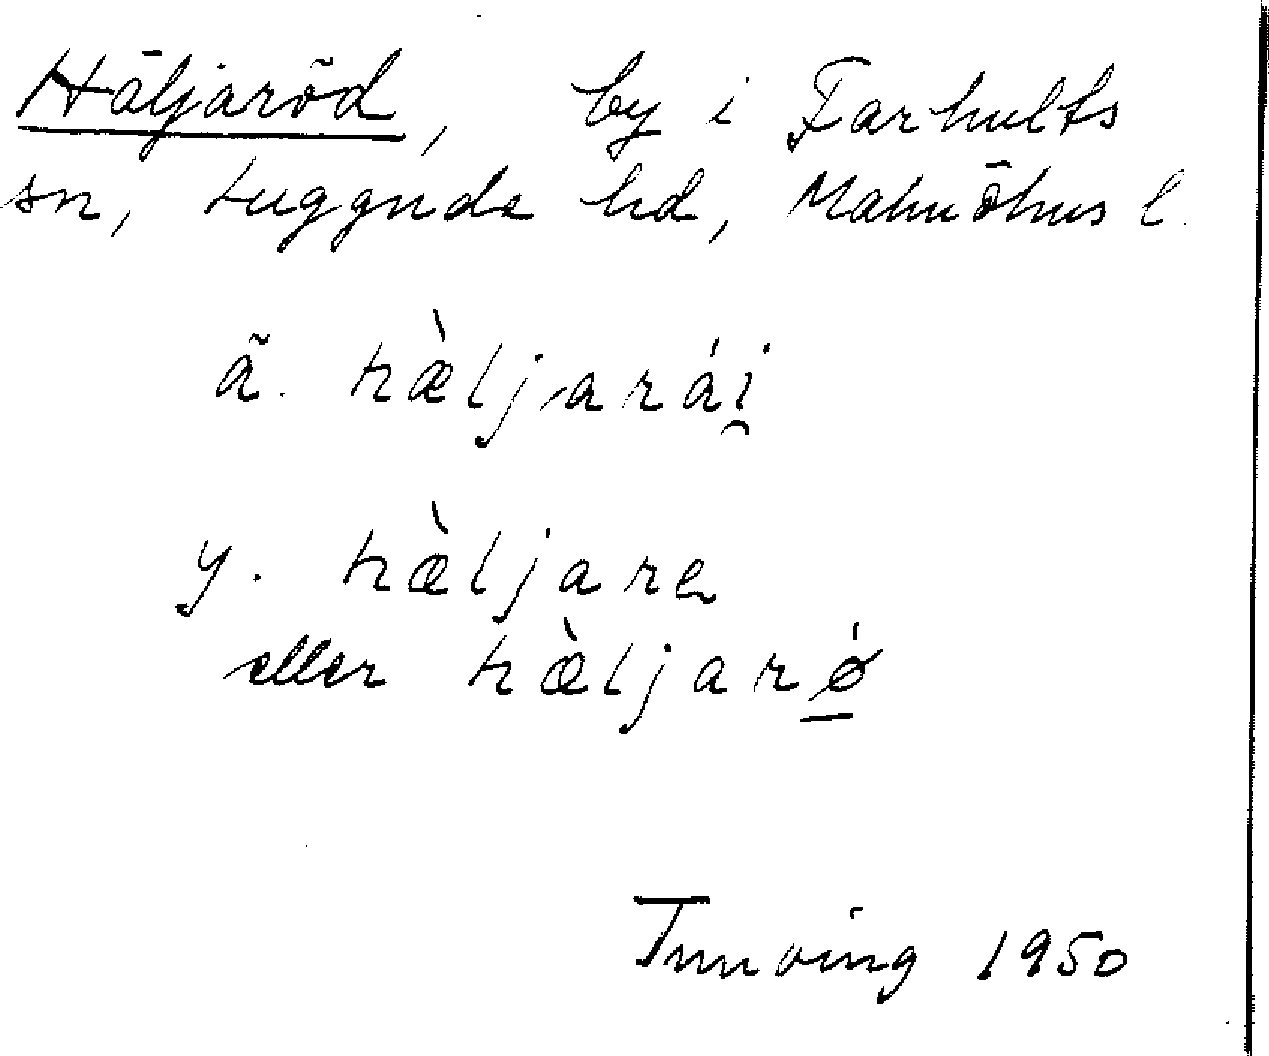 Häljaröd, by i Farhults
sn, Luggude hd, Malmöhus l.
ä. hæ̀ljarái̯
y. hæ̀ljare
eller hæ̀ljarǿ
1950